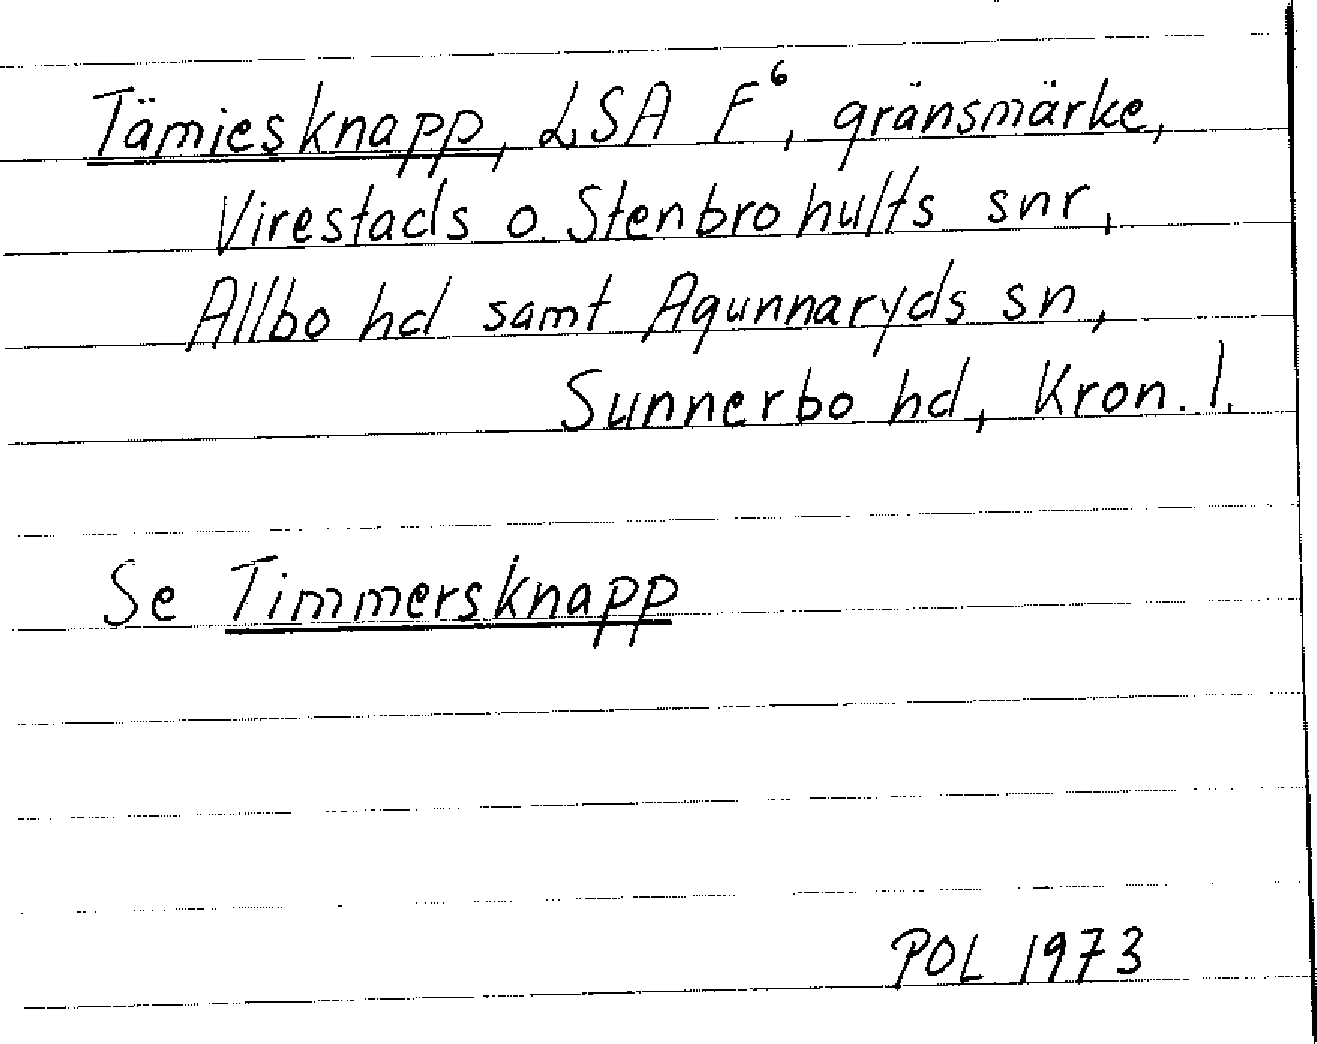 Tämiesknapp, LSA F⁶, gränsmärke,
Virestads o. Stenbrohults snr,
Allbo hd samt Agunnaryds sn,
Sunnerbo hd, Kron. l.
Se Timmersknapp
POL 1973